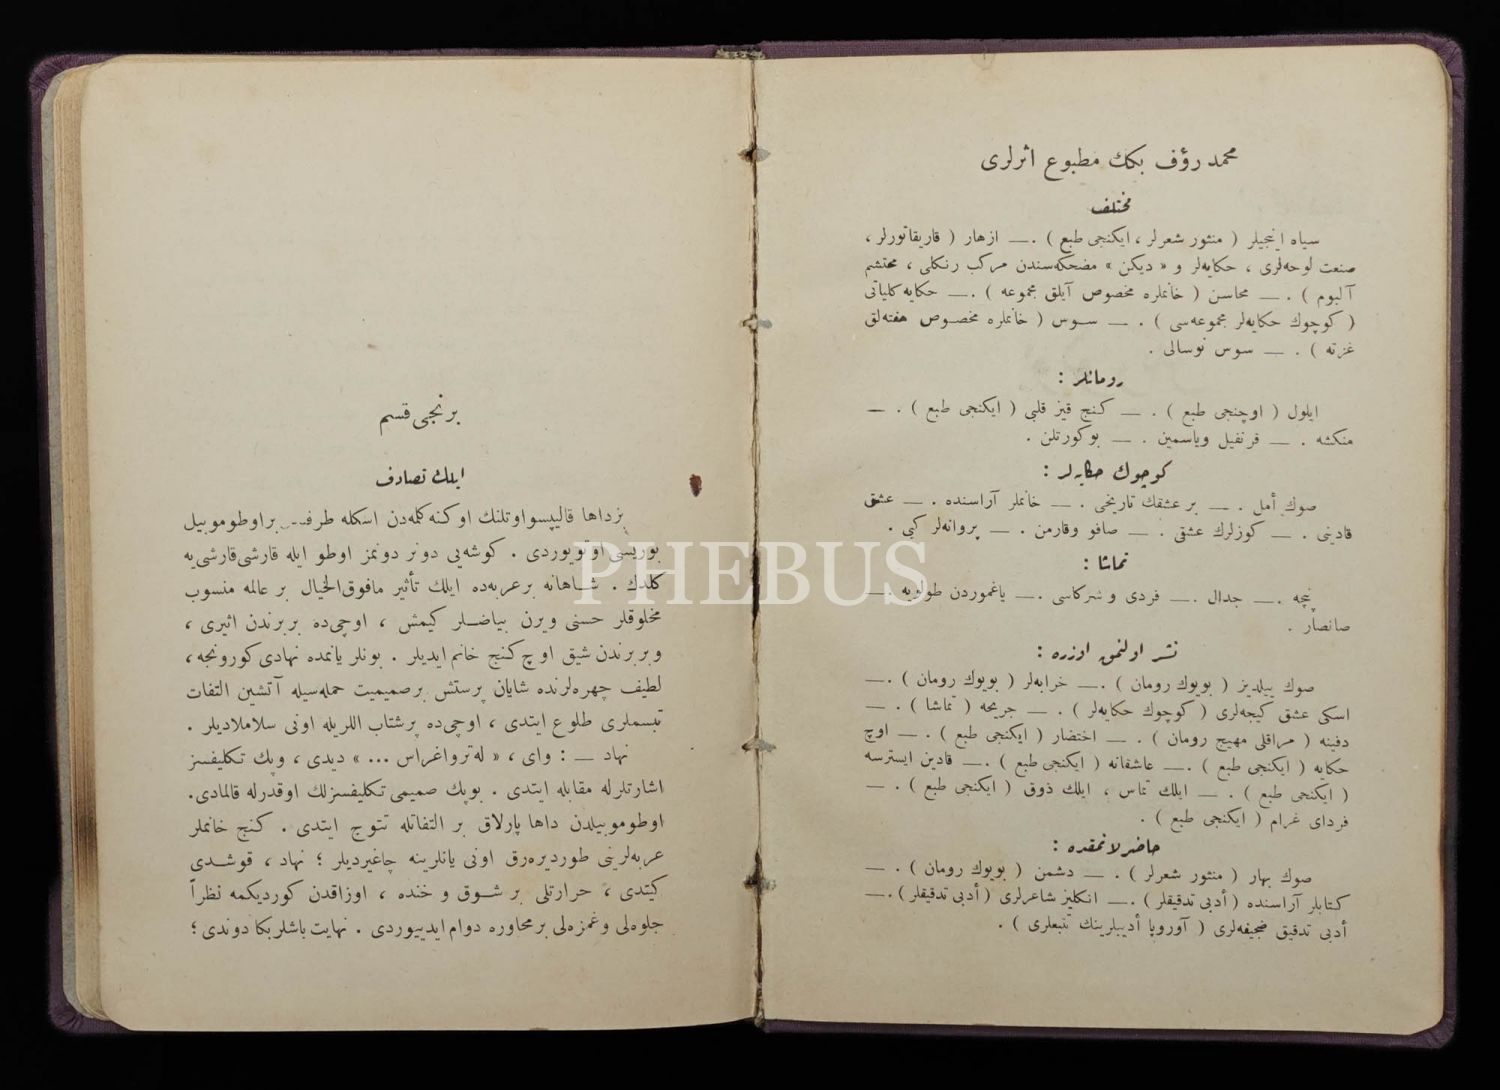 محمد رؤف بكك مطبوع اثرلری
مختلف
سیاه اینجیلر ( منثور شعرلر ، ایكنجی طبع ) . — ازهار ( قاریقاتورلر ،
صنعت لوحه‌لری ، حكایه‌لر و « دیكن » مضحكه‌سندن مركب رنكلی ، محتشم
آلبوم ) . — محاسن ( خانملره مخصوص آیلق مجموعه ) . — حكایه كلیاتی
( كوچوك حكایه‌لر مجموعه‌سی ) . — سوس ( خانملره مخصوص هفته‌لق
غزته ) . — سوس نوسالی .
رومانلر :
ایلول ( اوچنجی طبع ) . — كنج قیز قلبی ( ایكنجی طبع ) . —
منكشه . — قرنفیل ویاسمین . — بوكورتلن .
كوچوك حكایه‌لر :
صوك أمل . — بر عشقك تاریخی . — خانملر آراسنده . — عشق
قادینی . — كوزلرك عشقی . — صافو وقارمن . — پروانه‌لر كبی .
تماشا :
پنچه . — جدال . — فردی و شركاسی . — یاغموردن طولویه . —
صانصار .
نشر اولنمق اوزره :
صوك ییلدیز ( بویوك رومان ) . — خرابه‌لر ( بویوك رومان ) . —
اسكی عشق كیجه‌لری ( كوچوك حكایه‌لر ) . — جریحه ( تماشا ) . —
دفینه ( مراقلی مهیج رومان ) . — اختضار ( ایكنجی طبع ) . — اوچ
حكایه ( ایكنجی طبع ) . — عاشقانه ( ایكنجی طبع ) . — قادین ایسترسه
( ایكنجی طبع ) . — ایلك تماس ، ایلك ذوق ( ایكنجی طبع ) . —
فردای غرام ( ایكنجی طبع ) .
حاضرلانمقده :
صوك بهار ( منثور شعرلر ) . — دشمن ( بویوك رومان ) . —
كتابلر آراسنده ( أدبی تدقیقلر ) . — انكلیز شاعرلری ( أدبی تدقیقلر ) . —
أدبی تدقیق صحیفه‌لری ( آوروپا أدیبلرینك تتبعلری ) .
برنجی قسم
ایلك تصادف
بز داها قالیپسو اوتلنك اوكنه كلمه‌دن اسكله طرفـ بر اوطوموبیل
بوریسی اوتویوردی . كوشه‌یی دونر دونمز اوطو ایله قارشی قارشی‌یه
كلدك . شاهانه بر عربه‌ده ایلك تأثیر مافوق‌الخیال بر عالمه منسوب
مخلوقلر حسنی ویرن بیاضلر كیمش ، اوچی‌ده بربرندن اثیری ،
وبربرندن شیق اوچ كنج خانم ایدیلر . بونلر یانمده نهادی كورونجه ،
لطیف چهره‌لرنده شایان پرستش بر صمیمیت حمله‌سیله آتشین التفات
تبسملری طلوع ایتدی ، اوچی‌ده پرشتاب اللریله اونی سلاملادیلر .
نهاد — : وای ، « له‌ تروا غراس ... » دیدی ، وپك تكلیفسز
اشارتلرله مقابله ایتدی . بوپك صمیمی تكلیفسزلك اوقدرله قالمادی.
اوطوموبیلدن داها پارلاق بر التفاتله تتوج ایتدی . كنج خانملر
عربه‌لرینی طوردیره‌رق اونی یانلرینه چاغیردیلر ؛ نهاد ، قوشدی
كیتدی ، حرارتلی بر شوق و خنده ، اوزاقدن كوردیكمه نظراً
جلوه‌لی و غمزه‌لی بر محاوره دوام ایدییوردی . نهایت باشلر بكا دوندی ؛
PHEBUS